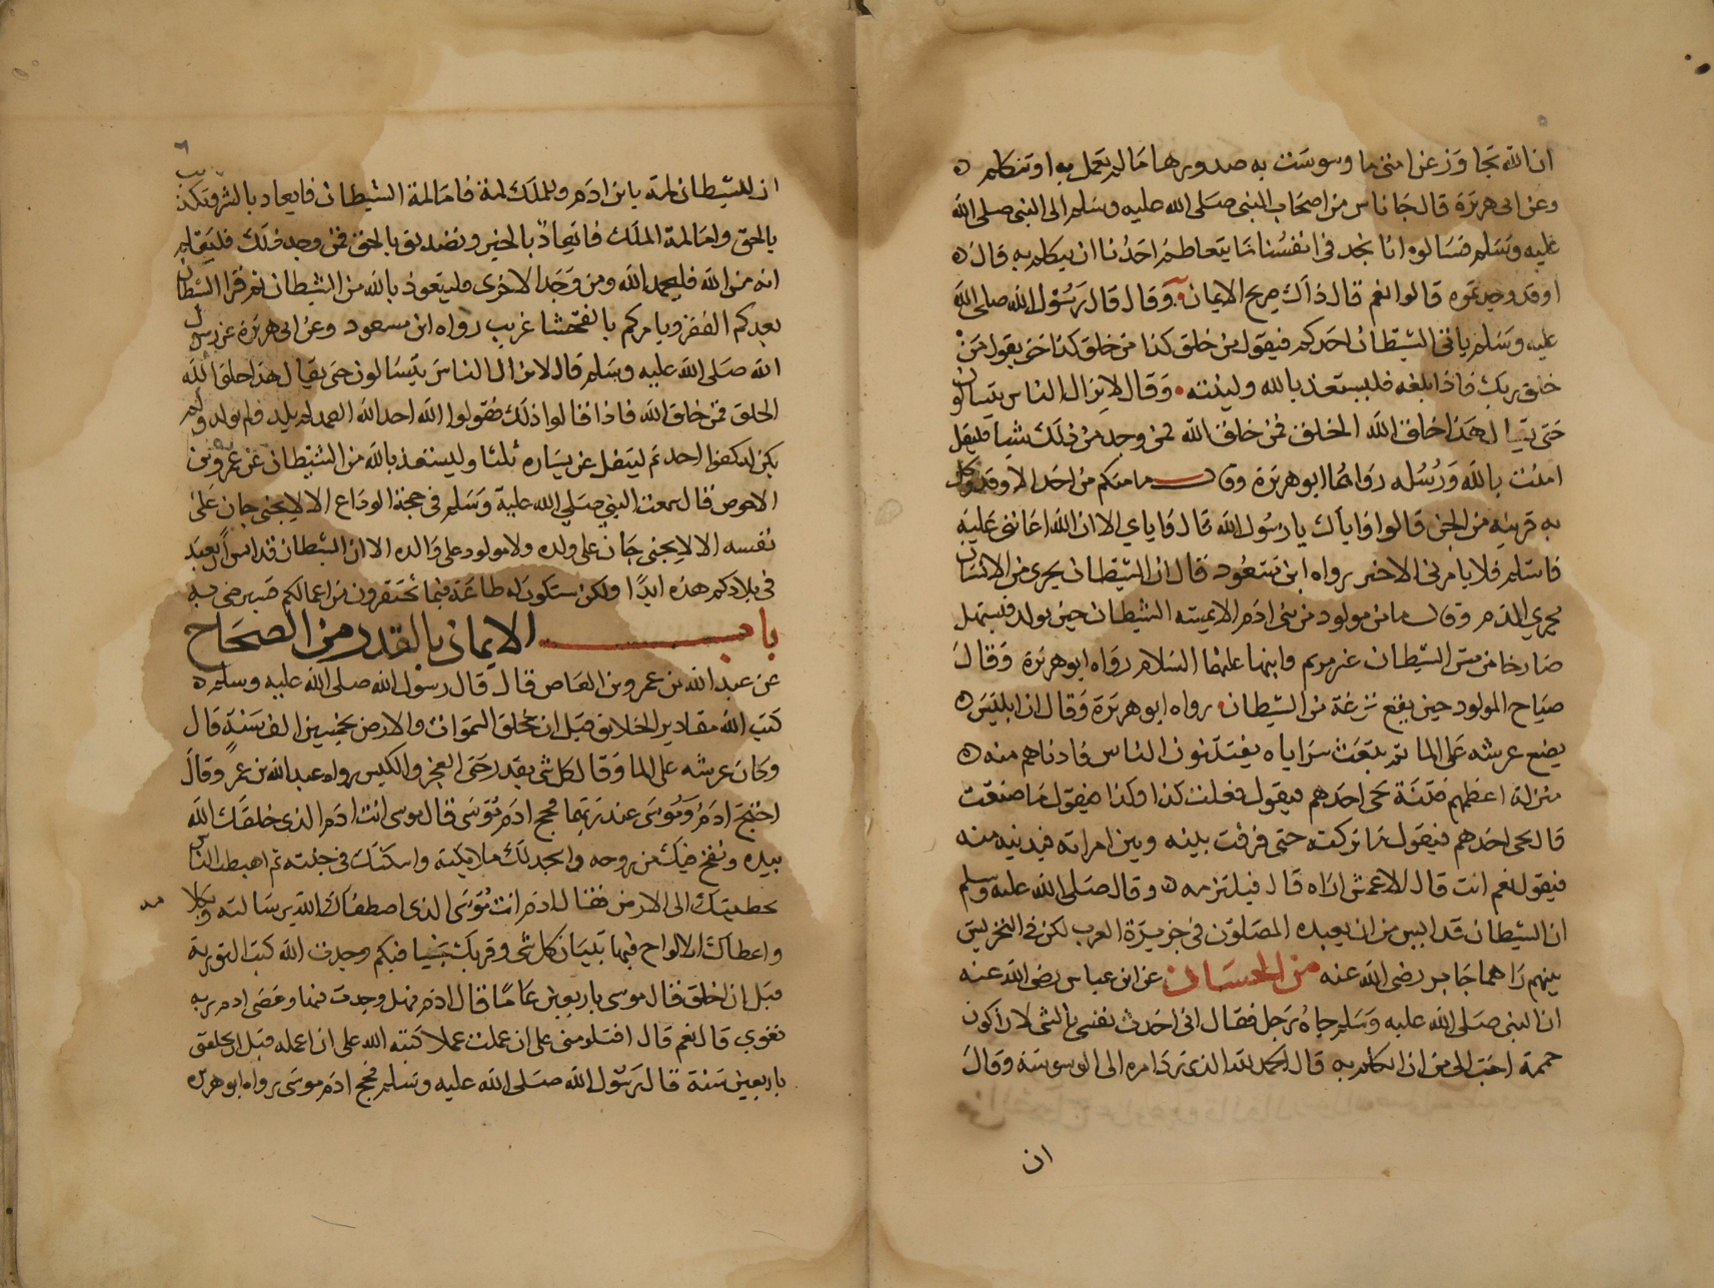 ان الله تجاوز عن امتي ما وسوست به صدورها ما لم تعمل به او تتكلم ه
وعن ابى هريرة قال جا ناس من اصحاب النبى صلى الله عليه وسلم الى النبى صلى الله
عليه وسلم فسالوه انا نجد فى انفسنا ما يتعاظم احدنا ان يتكلم به قال ه
اوقد وجدتموه قالوا نعم قال ذاك صريح الايمان وقال قال رسول الله صلى الله
عليه وسلم ياتى الشيطان احدكم فيقول من خلق كذا من خلق كذا حتى يقول من
خلق ربك فاذا بلغه فليستعذ بالله ولينته وقال لا يزال الناس يتسالون
حتى يقال هذا خلق الله الخلق فمن خلق الله فمن وجد من ذلك شيا فليقل
امنت بالله ورسله رواهما ابو هريرة وقال ما منكم من احد الا وقد وكل
به قرينه من الجن قالوا واياك يا رسول الله قال واياي الا ان الله اعاننى عليه
فاسلم فلا يامرنى الا بخير رواه ابن مسعود قال ان الشيطان يجرى من الانسان
مجري الدم وقال ما من مولود من بنى ادم الا يمسه الشيطان حين يولد فيستهل
صارخا من مس الشيطان غير مريم وابنها عليهما السلام رواه ابو هريرة وقال
صياح المولود حين يقع نزغة من الشيطان رواه ابو هريرة وقال ان ابليس ه
يضع عرشه على الما ثم يبعث سراياه يفتنون الناس فادناهم منه ه
منزلة اعظمهم فتنة يجى احدهم فيقول فعلت كذا وكذا فيقول ما صنعت
قال يجى احدهم فيقول ما تركته حتى فرقت بينه وبين امراته فيدنيه منه
فيقول نعم انت قال الاعمش اراه قال فيلتزمه ه وقال صلى الله عليه وسلم
ان الشيطان قد ايس من ان يعبده المصلون فى جزيرة العرب لكن فى التحريش
بينهم رواهما جابر رضى الله عنه من الحسان عن ابن عباس رضى الله عنه
ان النبى صلى الله عليه وسلم جاه رجل فقال انى احدث نفسى بالشى لان اكون
حممة احب الى من ان اتكلم به قال الحمد لله الذى رد امره الى الوسوسة وقال
ان
ان للشيطان لمة بابن ادم وللملك لمة فاما لمة الشيطان فايعاد بالشر وتكذيب
بالحق واما لمة الملك فايعاد بالخير وتصديق بالحق فمن وجد ذلك فليعلم
انه من الله فليحمد الله ومن وجد الاخرى فليتعوذ بالله من الشيطان ثم قرا الشيطان
يعدكم الفقر ويامركم بالفحشا غريب رواه ابن مسعود وعن ابى هريرة عن رسول
الله صلى الله عليه وسلم قال لا يزال الناس يتسالون حتى يقال هذا خلق الله
الخلق فمن خلق الله فاذا قالوا ذلك فقولوا الله احد الله الصمد لم يلد ولم يولد ولم
يكن له كفوا احد ثم ليتفل عن يساره ثلثا وليستعذ بالله من الشيطان عن عمرو بن
الاحوص قال سمعت النبي صلي الله علية وسلم فى حجة الوداع الا لا يجنى جان على
نفسه الا لا يجنى جان على ولده ولا مولود على والده الا ان الشيطان قد ايس ان يعبد
فى بلادكم هذه ابدا ولكن ستكون له طاعة فيما تحتقرون من اعمالكم فسيرضى به
باب الايمان بالقدر من الصحاح
عن عبد الله بن عمرو بن العاص قال قال رسول الله صلى الله عليه وسلم ه
كتب الله مقادير الخلايق قبل ان يخلق السموات والارض بخمسين الف سنة قال
وكان عرشه على الما وقال كل شى بقدر حتى العجز والكيس رواه عبد الله بن عمر وقال
احتج ادم وموسى عند ربهما فحج ادم موسى قال موسى انت ادم الذى خلقك الله
بيده ونفخ فيك من روحه واسجد لك ملايكته واسكنك فى جنته ثم اهبطت الناس
بخطيتك الى الارض فقال ادم انت موسى الذى اصطفاك الله برسالته وبكلامه
واعطاك الالواح فيها تبيان كل شى وقربك نجيا فبكم وجدت الله كتب التورية
قبل ان اخلق قال موسى باربعين عاما قال ادم فهل وجدت فيها وعصى ادم ربه
فغوي قال نعم قال افتلومنى على ان عملت عملا كتبه الله على ان اعمله قبل ان يخلقنى
باربعين سنة قال رسول الله صلى الله عليه وسلم فحج ادم موسى رواه ابو هريره